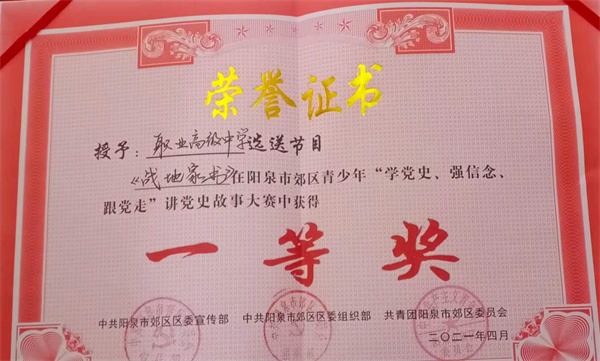 荣誉证书
授予：职业高级中学选送节目
《战地家书》在阳泉市郊区青少年“学党史、强信念、
跟党走”讲党史故事大赛中获得
一等奖
中共阳泉市郊区区委宣传部 中共阳泉市郊区区委组织部 共青团阳泉市郊区委员会
二〇二一年四月